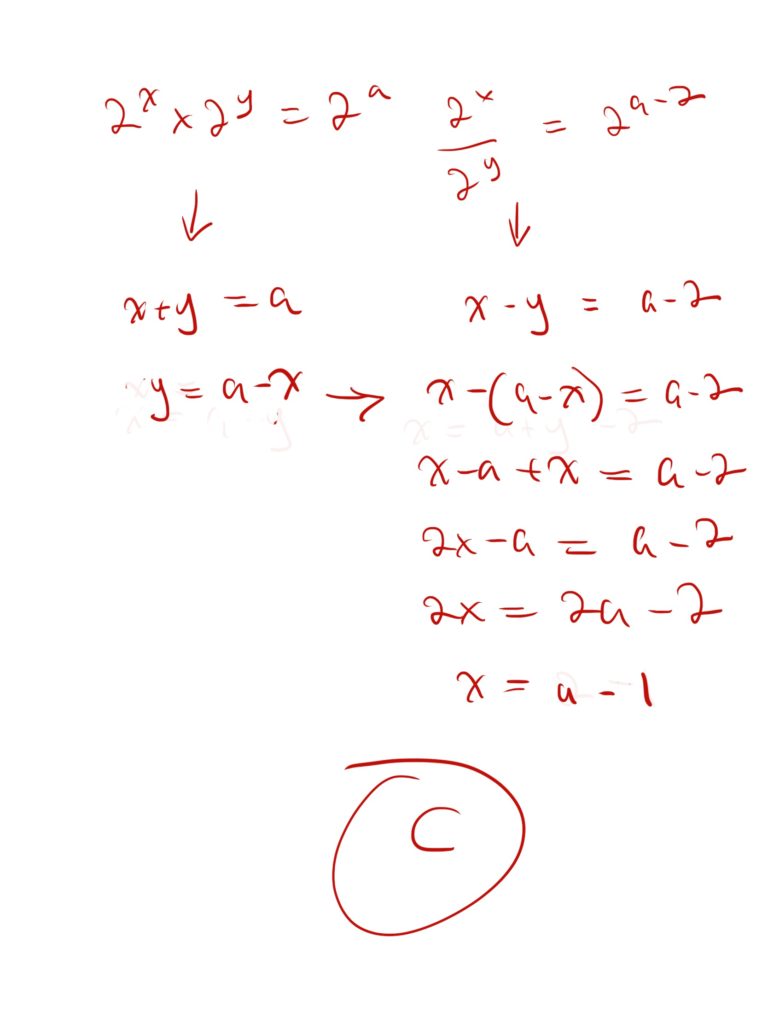 2^x × 2^y = 2^a    2^x / 2^y = 2^(a-2)
↓    ↓
x+y = a    x - y = a-2
y = a-x → x-(a-x) = a-2
x-a+x = a-2
2x-a = a-2
2x = 2a-2
x = a-1
C